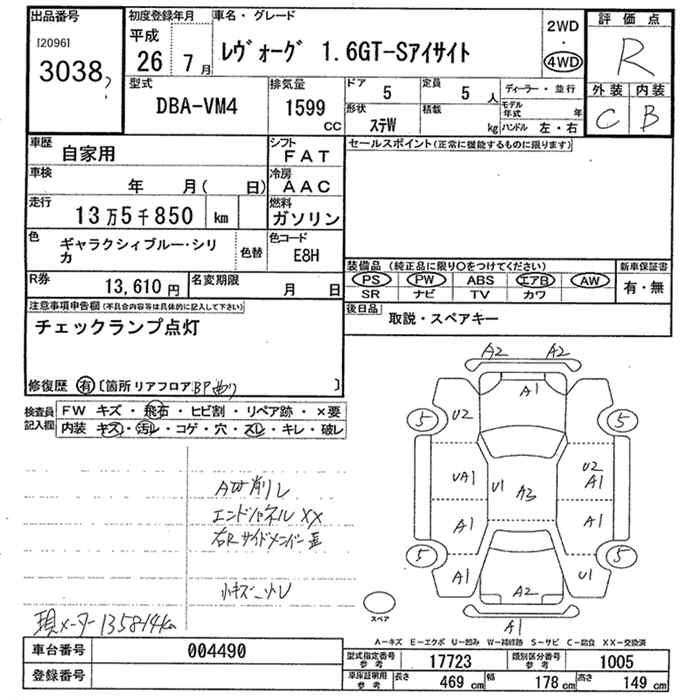 出品番号
[2096]
3038
初度登録年月
平成
26 7月
車名・グレード
レヴォーグ 1.6GT-Sアイサイト
2WD
・
4WD
評価点
R
外装 内装
C B
型式
DBA-VM4
排気量
1599
CC
ドア
5
定員
5 人
形状
ステW
積載
kg
ディーラー・並行
モデル年式 年
ハンドル 左・右
車歴
自家用
シフト
FAT
車検
年 月( 日)
冷房
AAC
走行
13万5千850 km
燃料
ガソリン
色
ギャラクシィブルー・シリカ
色替
色コード
E8H
R券
13,610 円
名変期限
月 日
セールスポイント(正常に機能するものに限ります)
装備品 (純正品に限り○をつけてください)
PS PW ABS エアB AW
SR ナビ TV カワ
新車保証書
有・無
後日品
取説・スペアキー
注意事項申告欄(不具合内容等は具体的に記入して下さい)
チェックランプ点灯
修復歴 有 [箇所 リアフロア BP曲り ]
検査員記入欄
FW キズ・飛石・ヒビ割・リペア跡・×要
内装 キズ・汚レ・コゲ・穴・スレ・キレ・破レ
A切削レ
エンドパネルXX
右Rサイドメンバー歪
小キズ・小レ
現メーター135814km
A2 A2
A1
5 U2 5
UA1 U1 A3 U2 A1
A1 A1
5 A1 A2 U1 5
A1
スペア
A-キズ E-エクボ U-凹み W-補修跡 S-サビ C-腐食 XX-交換済
車台番号
004490
登録番号
型式指定番号
参考
17723
類別区分番号
参考
1005
車庫証明用
参考
長さ
469 cm
幅
178 cm
高さ
149 cm